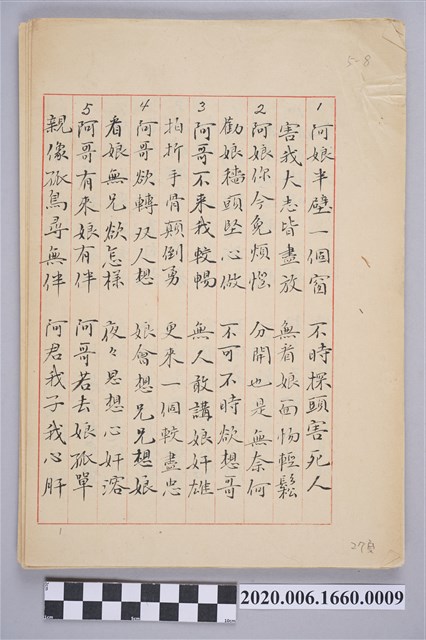 5-8
1 阿娘半壁一個窗 不時探頭害死人
害我大志皆盡放 無看娘面惕輕鬆
2 阿娘你今免煩惱 分開也是無奈何
勸娘穡頭堅心做 不可不時欲想哥
3 阿哥不来我較暢 無人敢講娘奸雄
拍折手骨顛倒勇 更来一個較盡忠
4 阿哥欲轉双人想 娘會想兄兄想娘
看娘無兄欲怎樣 夜々思想心奸溶
5 阿哥有来娘有伴 阿哥若去娘孤單
親像孤鳥尋無伴 阿君我子我心肝
1
27頁
1cm 5cm 10cm
2020.006.1660.0009